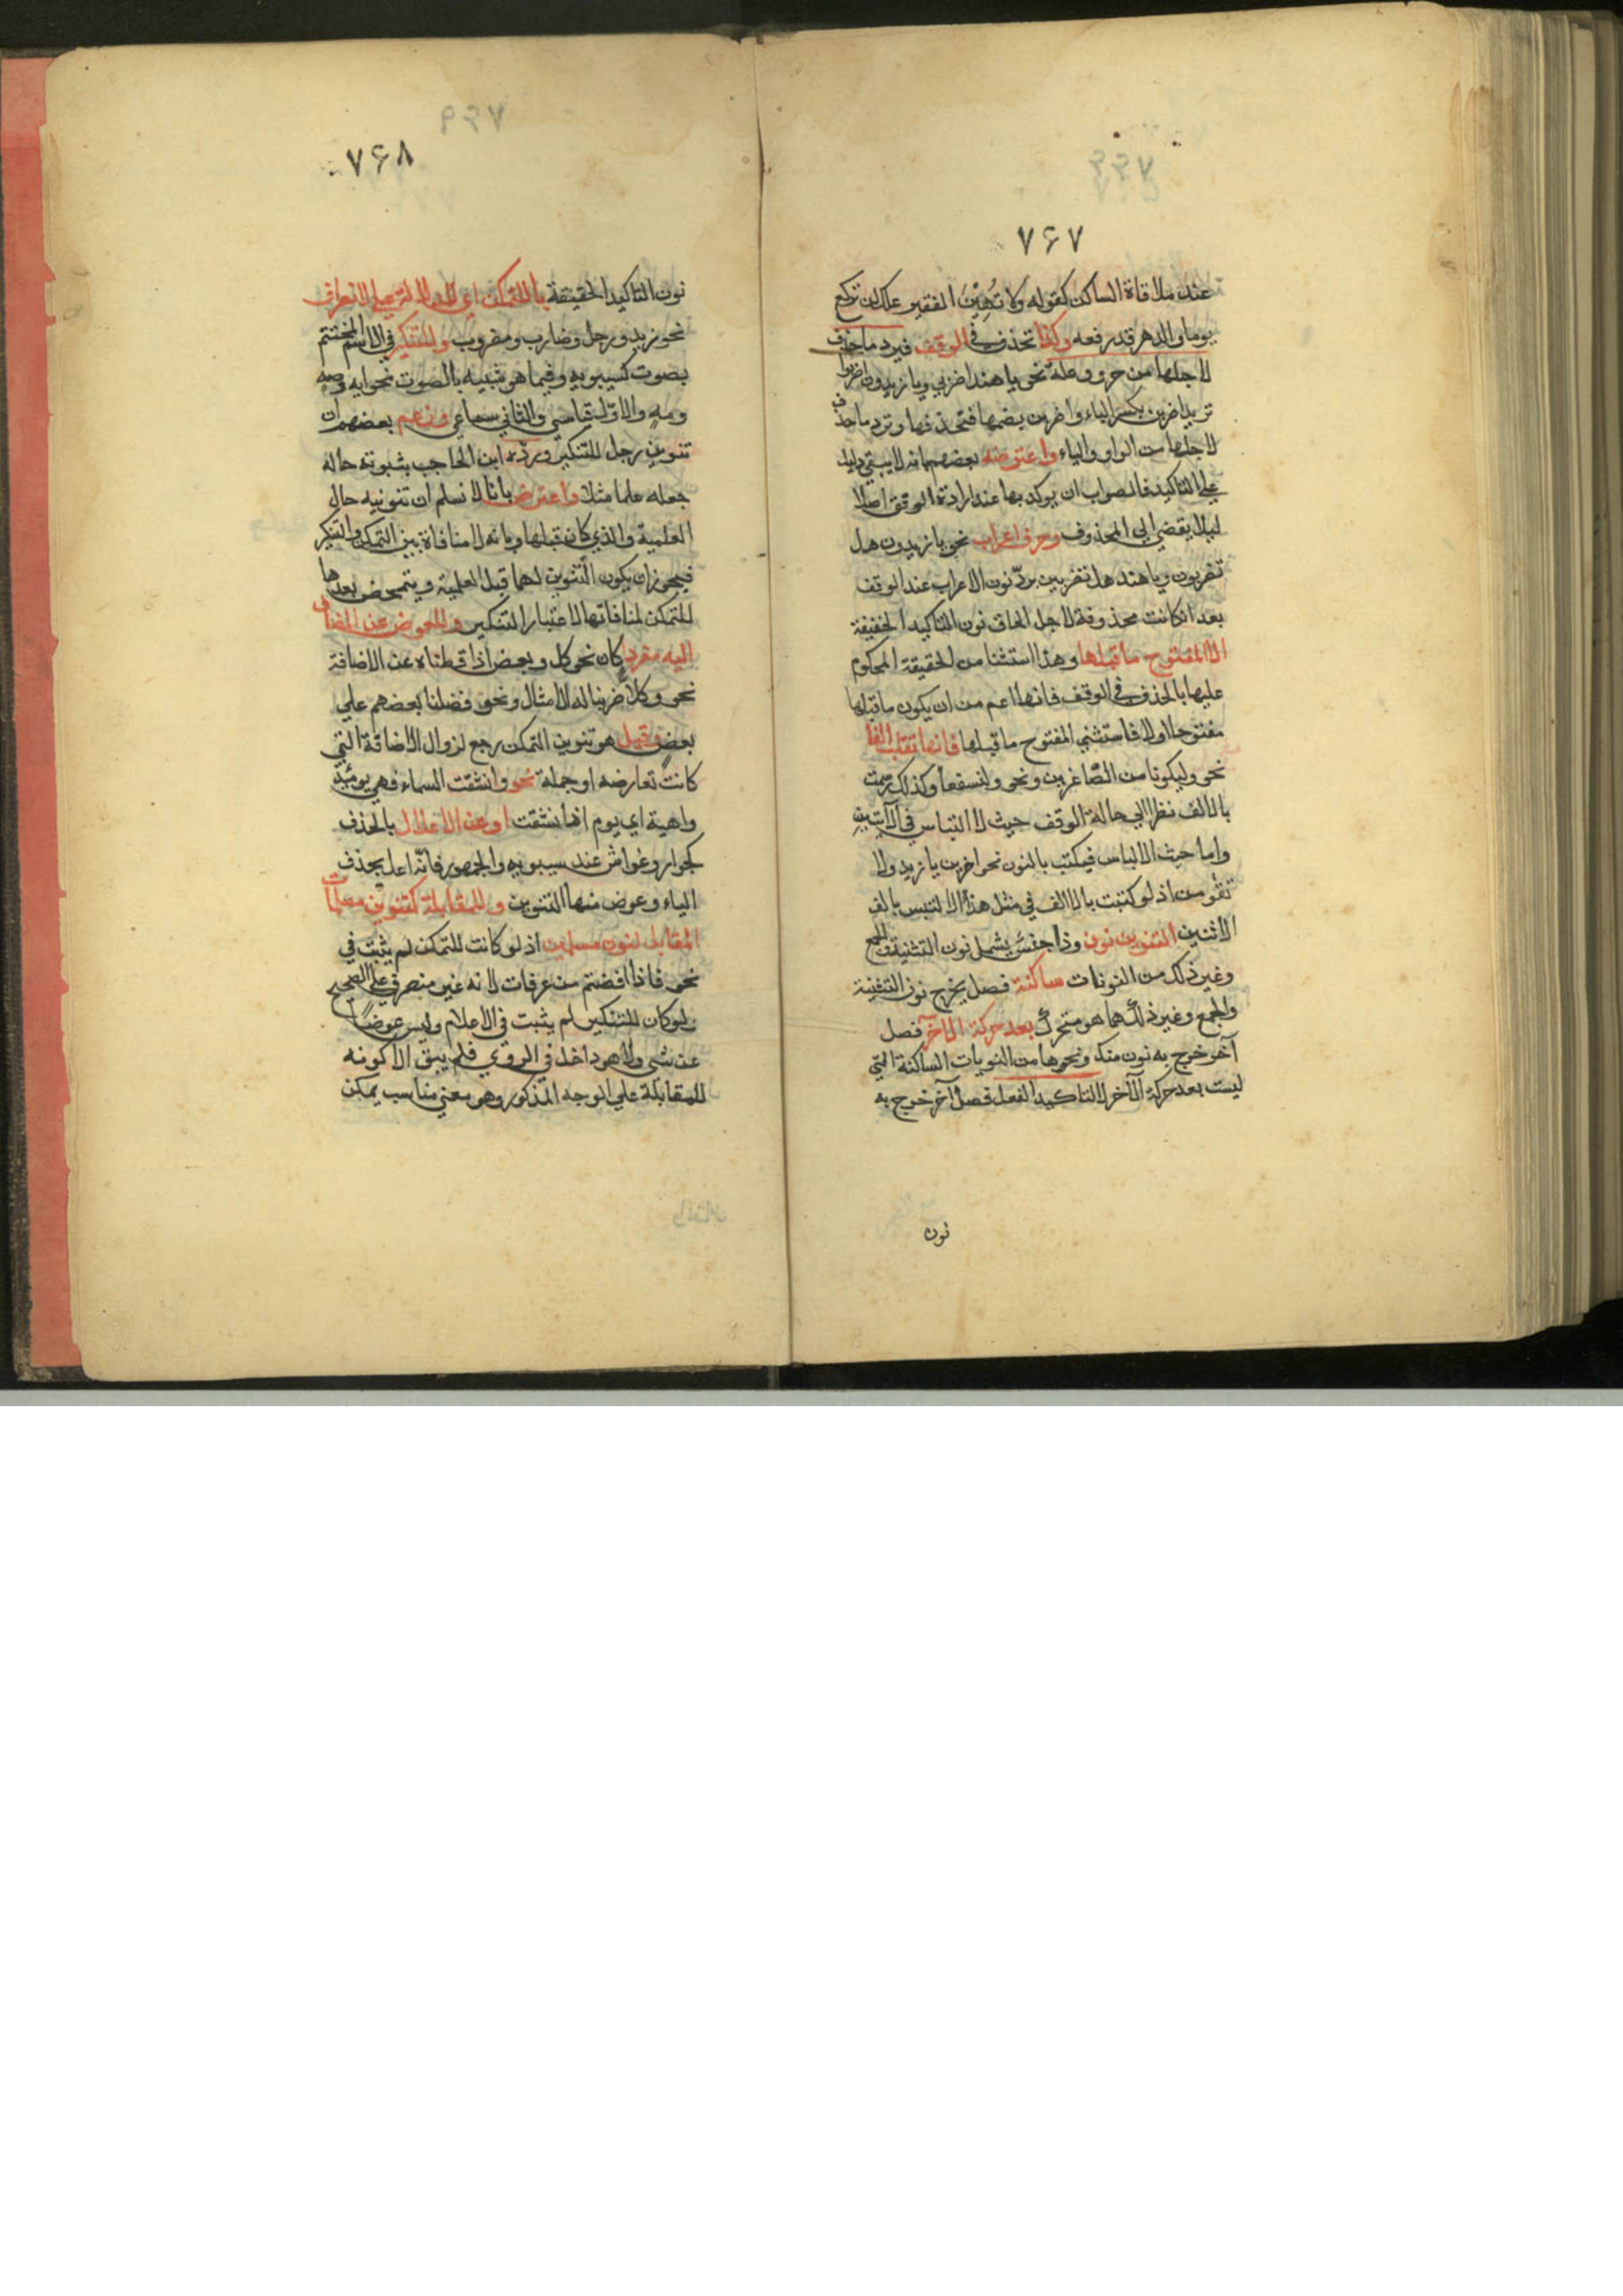 ۷۶۷
عند ملاقاة الساكن كقوله ولا تُهِيْنَ الفقير علك ان تركع
يوما والدهر قد رفعه وكذا تحذف في الوقف فيرد ما حذف
لاجلها من حرو وعلة نحو يا هند اضربي ويا زيدون اضربوا
تريد اضربن بكسر الباء واضربن بضمها فتحذفها وترد ما حذف
لاجلها من الواو والياء واعترضه بعضهم بانه لا يبقى دليل
على التاكيد فالصواب ان يوكد بها عند ارادة الوقف اصلا
ليلا يفضي الى المحذوف وحرف اعراب نحو يا زيدون هل
تضربون ويا هند هل تضربين بردّ نون الاعراب عند الوقف
بعد ان كانت محذوفة لاجل الحاق نون التاكيد الخفيفة
الا المفتوح ما قبلها وهذا استثنا من الحقيقة المحكوم
عليها بالحذف في الوقف فانها اعم من ان يكون ما قبلها
مفتوحا اولا فاستثنى المفتوح ما قبلها فانها تقلب الفا
نحو وليكونا من الصّاغرين ونحو ولنسفعا وكذلك رسمت
بالالف نظرا الى حالة الوقف حيث لا التباس في الآيتين
واما حيث الالباس فيكتب بالنون نحو اضربن يا زيد ولا
تقومن اذ لو كتبت بالالف في مثل هذا لالتبس بالف
الاثنين التنوين نون وذا جنس يشمل نون التثنية والجمع
وغير ذلك من النونات ساكنة فصل يخرج نون التثنية
والجمع وغير ذلك مما هو متحرك بعد حركة الآخر فصل
آخر خرج به نون منك ونحوها من النونات الساكنة التي
ليست بعد حركة الآخر لا لتاكيد الفعل فصل آخر خرج به
نون
۷۶۸
نون التاكيد الحقيقة بالتمكن اي للدلالة على الانصراف
نحو زيد ورجل وضارب ومضروب وللتنكير في الاسم المختتم
بصوت كسيبويه وفيما هو شبيه بالصوت نحو ايه وصه
ومه والاوّل قياسي والثاني سماعي وزعم بعضهم ان
تنوين رجل للتنكير وردّه ابن الحاجب بثبوته حاله
جعله علما مثلا واعترض بانا لا نسلم ان تنوينه حال
العلمية والذي كان قبلها وبانه لا منافاة بين التمكن والتنكير
فيجوز ان يكون التنوين لهما قبل العلمية ويتمحض بعدها
للتمكن لمنافاتها لاعتبار التنكير وللعوض عن المضاف
اليه مفردا كان نحو كل وبعض اذا قطناه عن الاضافة
نحو وكلاً ضربنا له الامثال ونحو فضلنا بعضهم علي
بعض وقيل هو تنوين التمكن رجع لزوال الاضافة التي
كانت تعارضه او جملة نحو وانشقت السماء فهي يومئذ
واهية اي يوم اذا نشقت او عن الاعلال بالحذف
كجوار وغواش عند سيبويه والجمهور فانّه اعل بحذف
الياء وعوض منها التنوين وللمقابلة كتنوين مسلمات
المقابل لنون مسلمين اذ لو كانت للتمكن لم يثبت في
نحو فاذا افضتم من عرفات لانه غير منصرف على الصحيح
ولو كان للتنكير لم يثبت في الاعلام وليس عوضاً
عن شى ولا هو داخل في الروى فلم يبق الا كونه
للمقابلة على الوجه المذكور وهو معنى مناسب يمكن